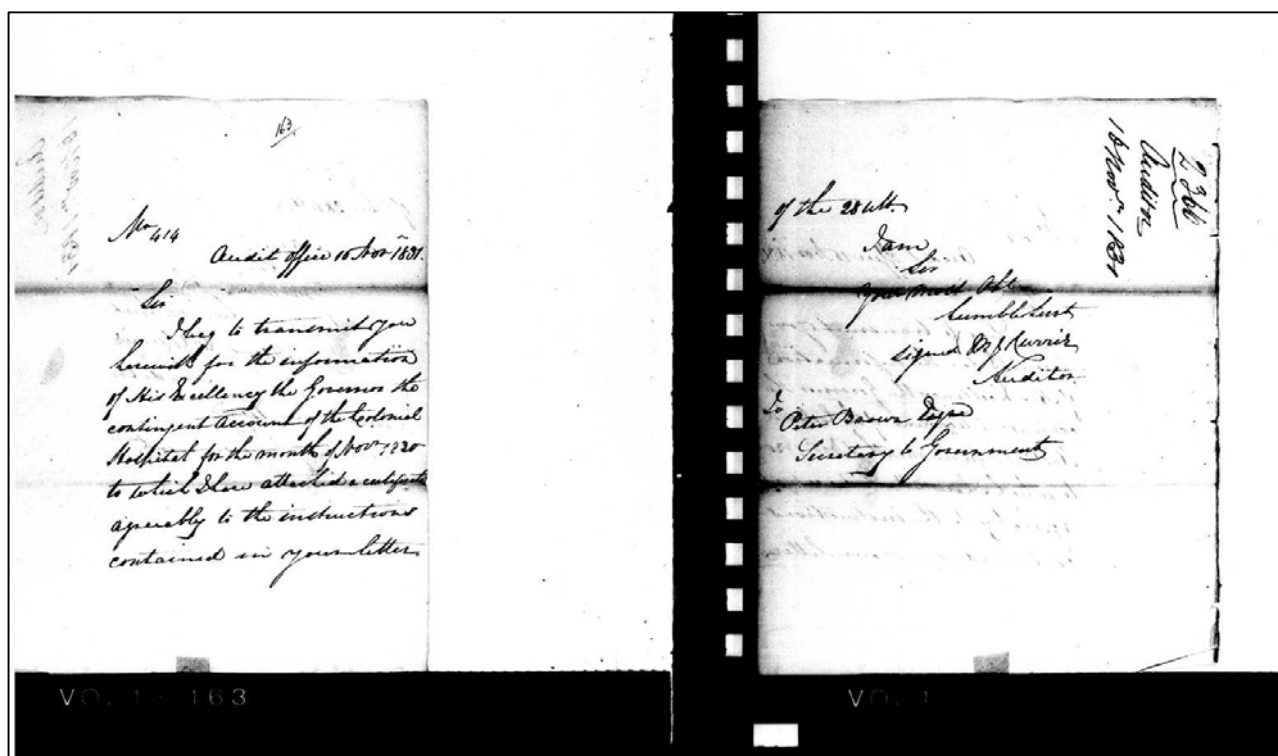 163
No 414
Audit Office 16 Novr 1831.
Sir
I beg to transmit you
herewith for the information
of His Excellency the Governor the
contingent Account of the Colonial
Hospital for the month of Novr 1830
to which I have attached a certificate
agreeably to the instructions
contained in your letter
VO. 1 163
of the 28 Ult.
I am
Sir
Your most Obt
humble Servt
signed Currie
Auditor
To
Peter Brown Esqre
Secretary to Government
Auditor
16 Novr 1831